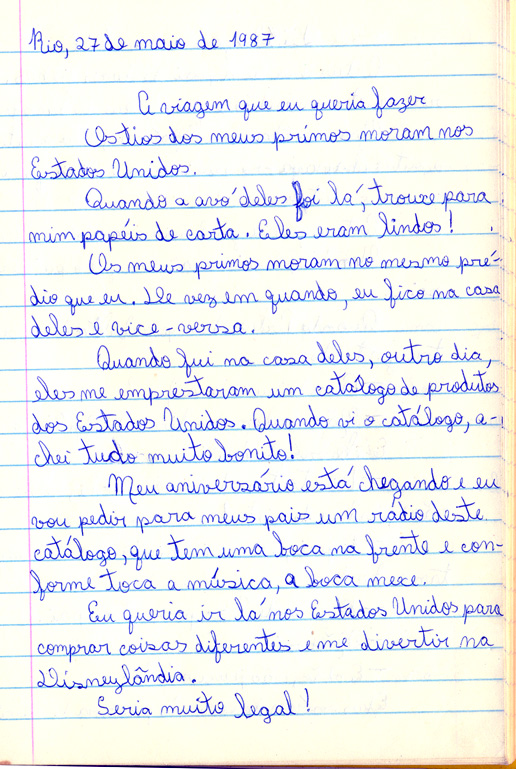 Rio, 27 de maio de 1987
A viagem que eu queria fazer
Os tios dos meus primos moram nos
Estados Unidos.
Quando a avó deles foi lá, trouxe para
mim papéis de carta. Eles eram lindos!
Os meus primos moram no mesmo pré-
dio que eu. De vez em quando, eu fico na casa
deles e vice-versa.
Quando fui na casa deles, outro dia,
eles me emprestaram um catálogo de produtos
dos Estados Unidos. Quando vi o catálogo, a-
chei tudo muito bonito!
Meu aniversário está chegando e eu
vou pedir para meus pais um rádio deste
catálogo, que tem uma boca na frente e con-
forme toca a música, a boca mexe.
Eu queria ir lá nos Estados Unidos para
comprar coisas diferentes e me divertir na
Disneylândia.
Seria muito legal!